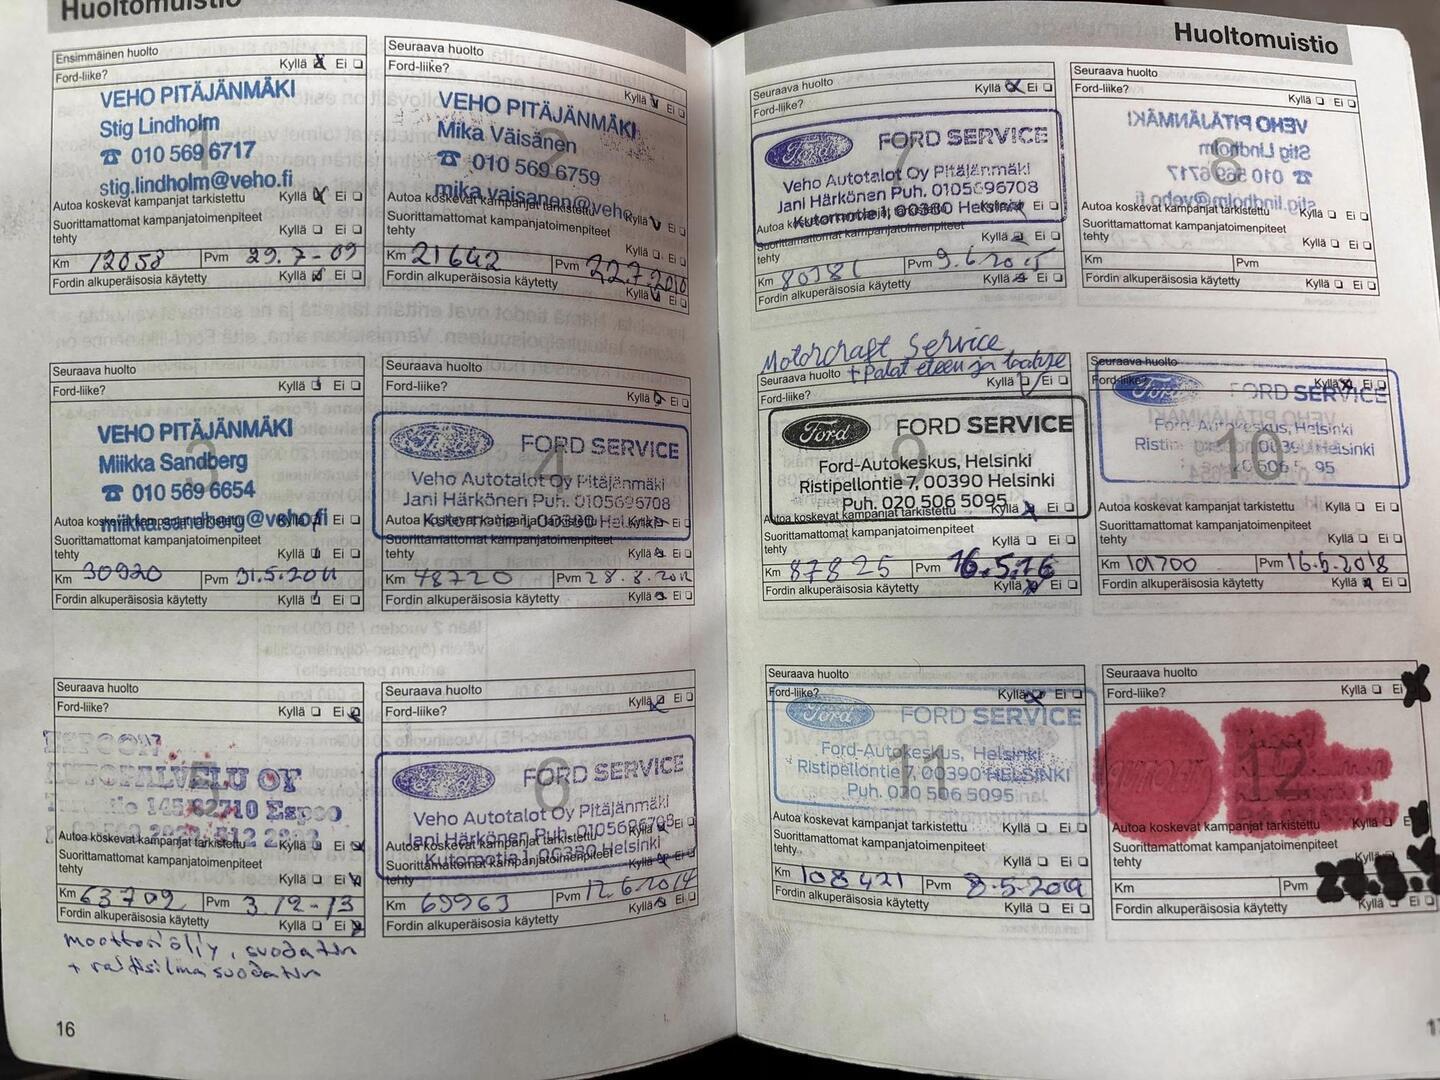 Huoltomuistio
Ensimmäinen huolto
Kyllä Ei
Ford-liike?
VEHO PITÄJÄNMÄKI
Stig Lindholm
☎ 010 569 6717
stig.lindholm@veho.fi
1
Autoa koskevat kampanjat tarkistettu Kyllä Ei
Suorittamattomat kampanjatoimenpiteet
tehty Kyllä Ei
Km 12058 Pvm 29.7-09
Fordin alkuperäisosia käytetty Kyllä Ei
Seuraava huolto
Ford-liike? Kyllä Ei
VEHO PITÄJÄNMÄKI
Mika Väisänen
☎ 010 569 6759
mika.vaisanen@veho
2
Autoa koskevat kampanjat tarkistettu Kyllä
Suorittamattomat kampanjatoimenpiteet
tehty Kyllä Ei
Km 21642 Pvm 22.7.2010
Fordin alkuperäisosia käytetty Kyllä Ei
Seuraava huolto
Ford-liike? Kyllä Ei
VEHO PITÄJÄNMÄKI
Miikka Sandberg
☎ 010 569 6654
miikka.sandberg@veho.fi
3
Autoa koskevat kampanjat tarkistettu Kyllä
Suorittamattomat kampanjatoimenpiteet
tehty Kyllä Ei
Km 30920 Pvm 31.5.2011
Fordin alkuperäisosia käytetty Kyllä Ei
Seuraava huolto
Ford-liike? Kyllä Ei
Ford FORD SERVICE
Veho Autotalot Oy Pitäjänmäki
Jani Härkönen Puh. 0105696708
Kutomotie 1, 00380 Helsinki
4
Autoa koskevat kampanjat tarkistettu Kyllä Ei
Suorittamattomat kampanjatoimenpiteet
tehty Kyllä Ei
Km 48720 Pvm 28.8.2012
Fordin alkuperäisosia käytetty Kyllä Ei
Seuraava huolto
Ford-liike? Kyllä Ei
ESPOON
AUTOPALVELU OY
02710 Espoo
5
Autoa koskevat kampanjat tarkistettu Kyllä Ei
Suorittamattomat kampanjatoimenpiteet
tehty Kyllä Ei
Km 63709 Pvm 3.12-13
Fordin alkuperäisosia käytetty Kyllä Ei
moottoriöljy, suodatin
+ raitisilmasuodatin
Seuraava huolto
Ford-liike? Kyllä Ei
Ford FORD SERVICE
Veho Autotalot Oy Pitäjänmäki
Jani Härkönen Puh. 0105696708
Kutomotie 1, 00380 Helsinki
6
Autoa koskevat kampanjat tarkistettu Kyllä Ei
Suorittamattomat kampanjatoimenpiteet
tehty Kyllä Ei
Km 69963 Pvm 12.6.2014
Fordin alkuperäisosia käytetty Kyllä Ei
16
Huoltomuistio
Seuraava huolto
Ford-liike? Kyllä Ei
Ford FORD SERVICE
Veho Autotalot Oy Pitäjänmäki
Jani Härkönen Puh. 0105696708
Kutomotie 1, 00380 Helsinki
7
Autoa koskevat kampanjat tarkistettu
Suorittamattomat kampanjatoimenpiteet
tehty Kyllä Ei
Km 80381 Pvm 9.6.2015
Fordin alkuperäisosia käytetty Kyllä Ei
Seuraava huolto
Ford-liike? Kyllä Ei
8
Autoa koskevat kampanjat tarkistettu Kyllä Ei
Suorittamattomat kampanjatoimenpiteet
tehty Kyllä Ei
Km Pvm
Fordin alkuperäisosia käytetty Kyllä Ei
Motorcraft Service
+ Palat eteen ja taakse
Seuraava huolto
Ford-liike? Kyllä Ei
Ford FORD SERVICE
Ford-Autokeskus, Helsinki
Ristipellontie 7, 00390 Helsinki
Puh. 020 506 5095
9
Autoa koskevat kampanjat tarkistettu Kyllä Ei
Suorittamattomat kampanjatoimenpiteet
tehty Kyllä Ei
Km 87825 Pvm 16.5.16
Fordin alkuperäisosia käytetty Kyllä Ei
Seuraava huolto
Ford-liike? Kyllä Ei
Ford FORD SERVICE
Ford-Autokeskus, Helsinki
Helsinki
10
Autoa koskevat kampanjat tarkistettu Kyllä Ei
Suorittamattomat kampanjatoimenpiteet
tehty Kyllä Ei
Km 101700 Pvm 16.5.2018
Fordin alkuperäisosia käytetty Kyllä Ei
Seuraava huolto
Ford-liike? Kyllä Ei
Ford FORD SERVICE
Ford-Autokeskus, Helsinki
Ristipellontie 7, 00390 HELSINKI
Puh. 020 506 5095
11
Autoa koskevat kampanjat tarkistettu Kyllä Ei
Suorittamattomat kampanjatoimenpiteet
tehty Kyllä Ei
Km 108421 Pvm 8.5.2019
Fordin alkuperäisosia käytetty Kyllä Ei
Seuraava huolto
Ford-liike? Kyllä Ei
12
Autoa koskevat kampanjat tarkistettu Kyllä
Suorittamattomat kampanjatoimenpiteet
tehty Kyllä
Km Pvm
Fordin alkuperäisosia käytetty Kyllä Ei